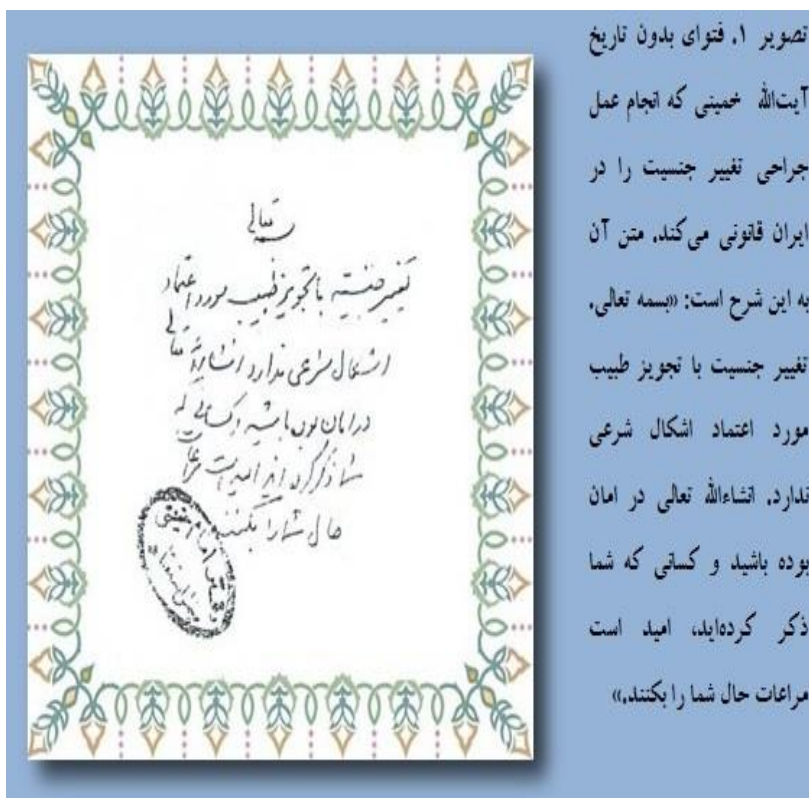 تصویر ۱. فتوای بدون تاریخ
آیت‌الله خمینی که انجام عمل
جراحی تغییر جنسیت را در
ایران قانونی می‌کند. متن آن
به این شرح است: «بسمه تعالی.
تغییر جنسیت با تجویز طبیب
مورد اعتماد اشکال شرعی
ندارد. انشاءالله تعالی در امان
بوده باشید و کسانی که شما
ذکر کرده‌اید، امید است
مراعات حال شما را بکنند.»
بسمه تعالی
تغییر جنسیت با تجویز طبیب مورد اعتماد
اشکال شرعی ندارد انشاءالله تعالی
در امان بوده باشید و کسانی که
شما ذکر کرده‌اید امید است مراعات
حال شما را بکنند
دفتر امام خمینی